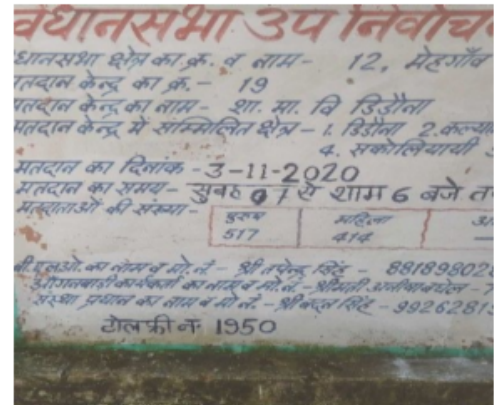 वधानसभा उप निर्वाच
धानसभा क्षेत्र का क्र. व नाम - 12, मेहगाँव
तदान केन्द्र का क्र. - 19
तदान केन्द्र का नाम - शा. मा. वि डिडौना
मतदान केन्द्र में सम्मिलित क्षेत्र - 1. डिडौना 2. कल्या
4. सकोलियायी
मतदान का दिनांक - 3-11-2020
मतदान का समय - सुबह 07 से शाम 6 बजे त
मतदाताओं की संख्या -
पुरुष महिला अ
517 414
बी.एलओ. का नाम व मो. नं - श्री तपेन्द्र सिंह - 88189802
आंगनवाडी कार्यकर्ता का नाम व मो. नं - श्रीमती
संस्था प्रधान का नाम व मो नं. - श्री सिंह - 9926281
टोल फ्री नं 1950